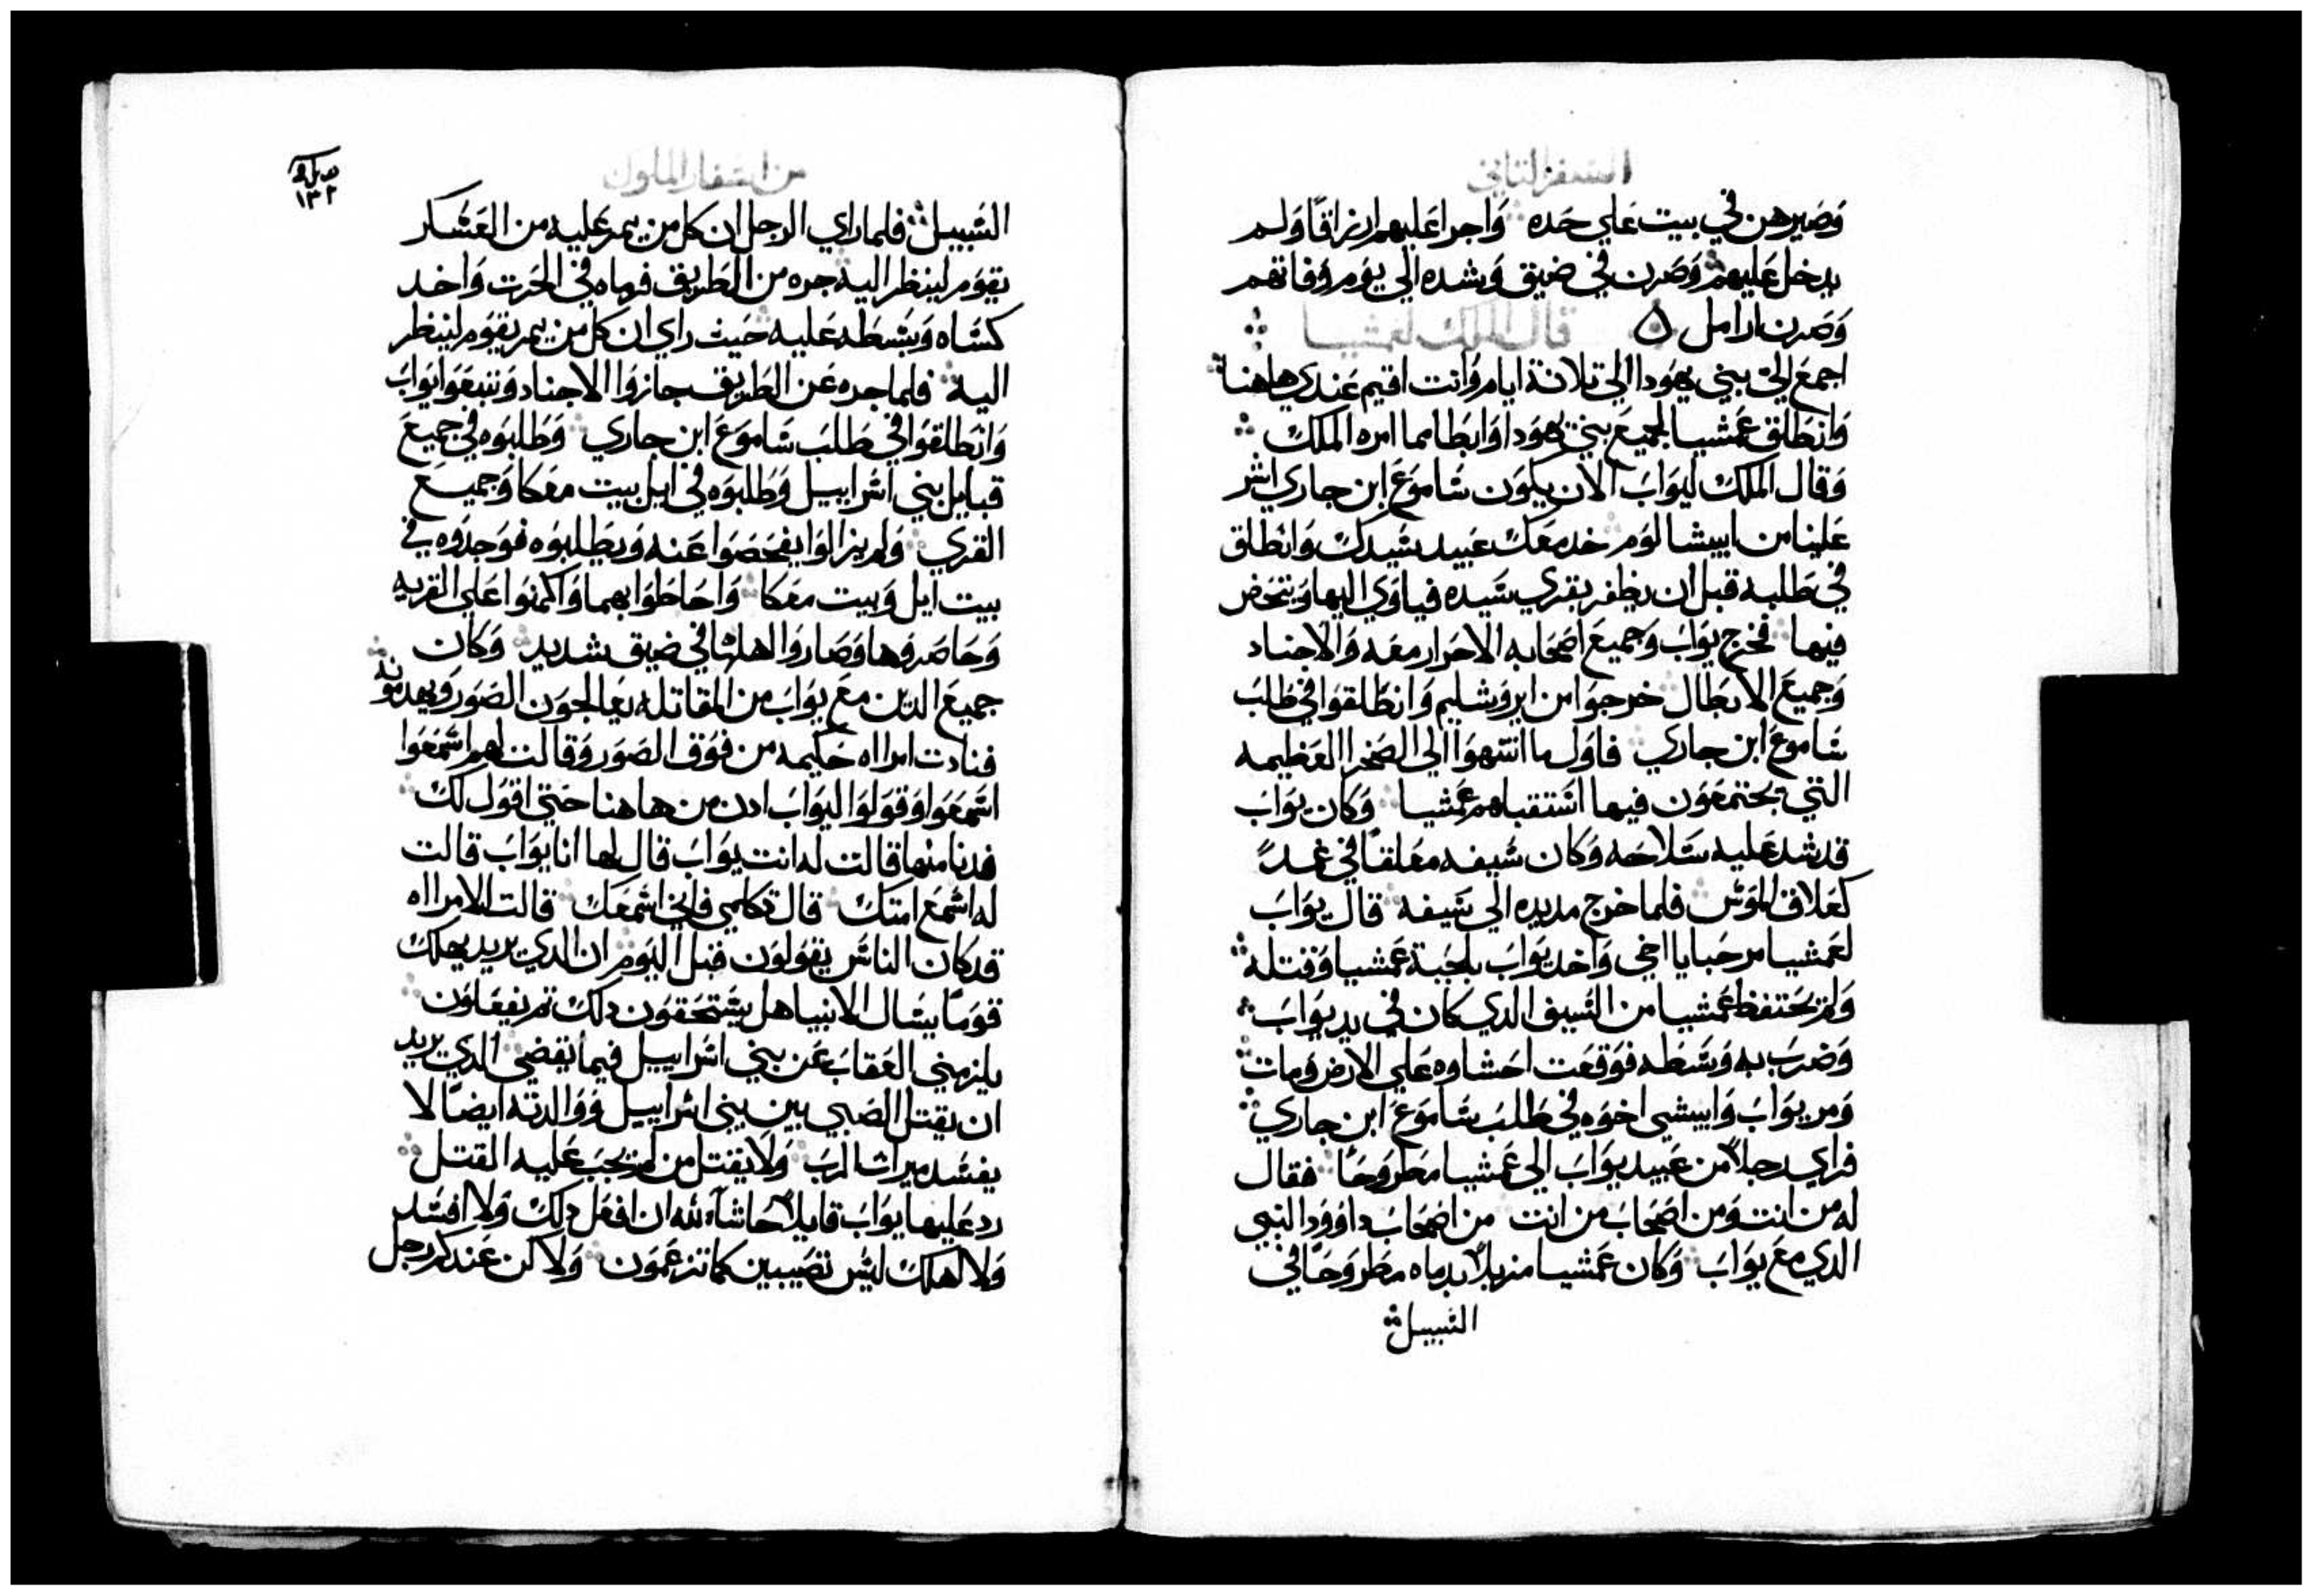 السفر الثاني
وصيرهن في بيت علي حده واجرا عليهم ارزاقا ولم
يدخل عليهم وصرن في ضيق وشده الي يوم وفاتهم
وصرن ارامل قال الملك لعمشيا
اجمع الي بني يهودا الي تلاتة ايام وانت اقيم عندي هاهنا
وانطلق عمشيا لجميع بني يهودا وابطا مما امره الملك
وقال الملك ليواب الان يكون ساموع ابن جاري اشر
علينا من ابيشالوم خد معك عبيد سيدك وانطلق
في طلبه قبل ان يظفر بقري سيده فياوي اليها ويتحض
فيها فخرج يواب وجميع اصحابه الاحرار معه والاجناد
وجميع الابطال خرجوا من ايروشليم وانطلقوا في طلب
ساموع ابن جاري فاول ما انتهوا الي الصخرا العظيمه
التي يجتمعون فيها استقباهم عمشيا وكان يواب
قد شد عليه سلاحه وكان سيفه معلقا في غمد
كعلاق الموس فلما خرج مد يده الي سيفه قال يواب
لعمشيا مرحبا يا اخي واخد يواب بلحية عمشيا وقتله
ولم يحتفظ عمشيا من السيف الدي كان في يد يواب
وضرب به وسطه فوقعت احشاوه علي الارض ومات
ومر يواب وابيشي اخوه في طلب ساموع ابن جاري
فراي رجلا من عبيد يواب الي عمشيا مطروحا فقال
له من انت ومن اصحاب من انت من اصحاب داوود النبي
الدي مع يواب وكان عمشيا مزبلا بدماه مطروحا في
السبيل
من اسفار الملوك
١٣٢
السبيل فلما راي الرجل ان كل من يمر عليه من العسكر
يقوم لينظر اليه جره من الطريق فرماه في الحرت واخد
كساه وبسطه عليه حيت راي ان كل من يمر يقوم لينظر
اليه فلما جره عن الطريق جازوا الاجناد وتبعوا يواب
وانطلقوا في طلب ساموع ابن جاري وطلبوه في جميع
قبايل بني اسراييل وطلبوه في ابل بيت معكا وجميع
القري ولم يزالوا يفحصوا عنه ويطلبوه فوجدوه في
بيت ابل وبيت معكا واحاطوا بهما واكمنوا علي القريه
وحاصروها وصاروا اهلها في ضيق شديد وكان
جميع الدين مع يواب من المقاتله يعالجون الصور ويهدمونه
فنادت امراه حكيمه من فوق الصور وقالت لهم اسمعوا
اسمعوا وقولوا ليواب ادن من هاهنا حتي اقول لك
فدنا منها قالت له انت يواب قال لها انا يواب قالت
له اسمع امتك قال تكلمي فاني اسمعك قالت الامراه
قد كان الناس يقولون قبل اليوم ان الدي يريد يهلك
قوما يسال الانبيا هل يستحقون دلك تم يفعلون
يلزمني العقاب عن بني اسراييل فيما تقضي الدي يريد
ان يقتل الصبي بين بني اسراييل ووالدته ايضا لا
يفسد ميرات الرب ولا يقتل من لم يجب عليه القتل
رد عليها يواب قايلا حاشا لله ان افعل دلك ولا افسد
ولا اهلك ليس نصيبين كما تزعمون ولا كن عندكم رجل